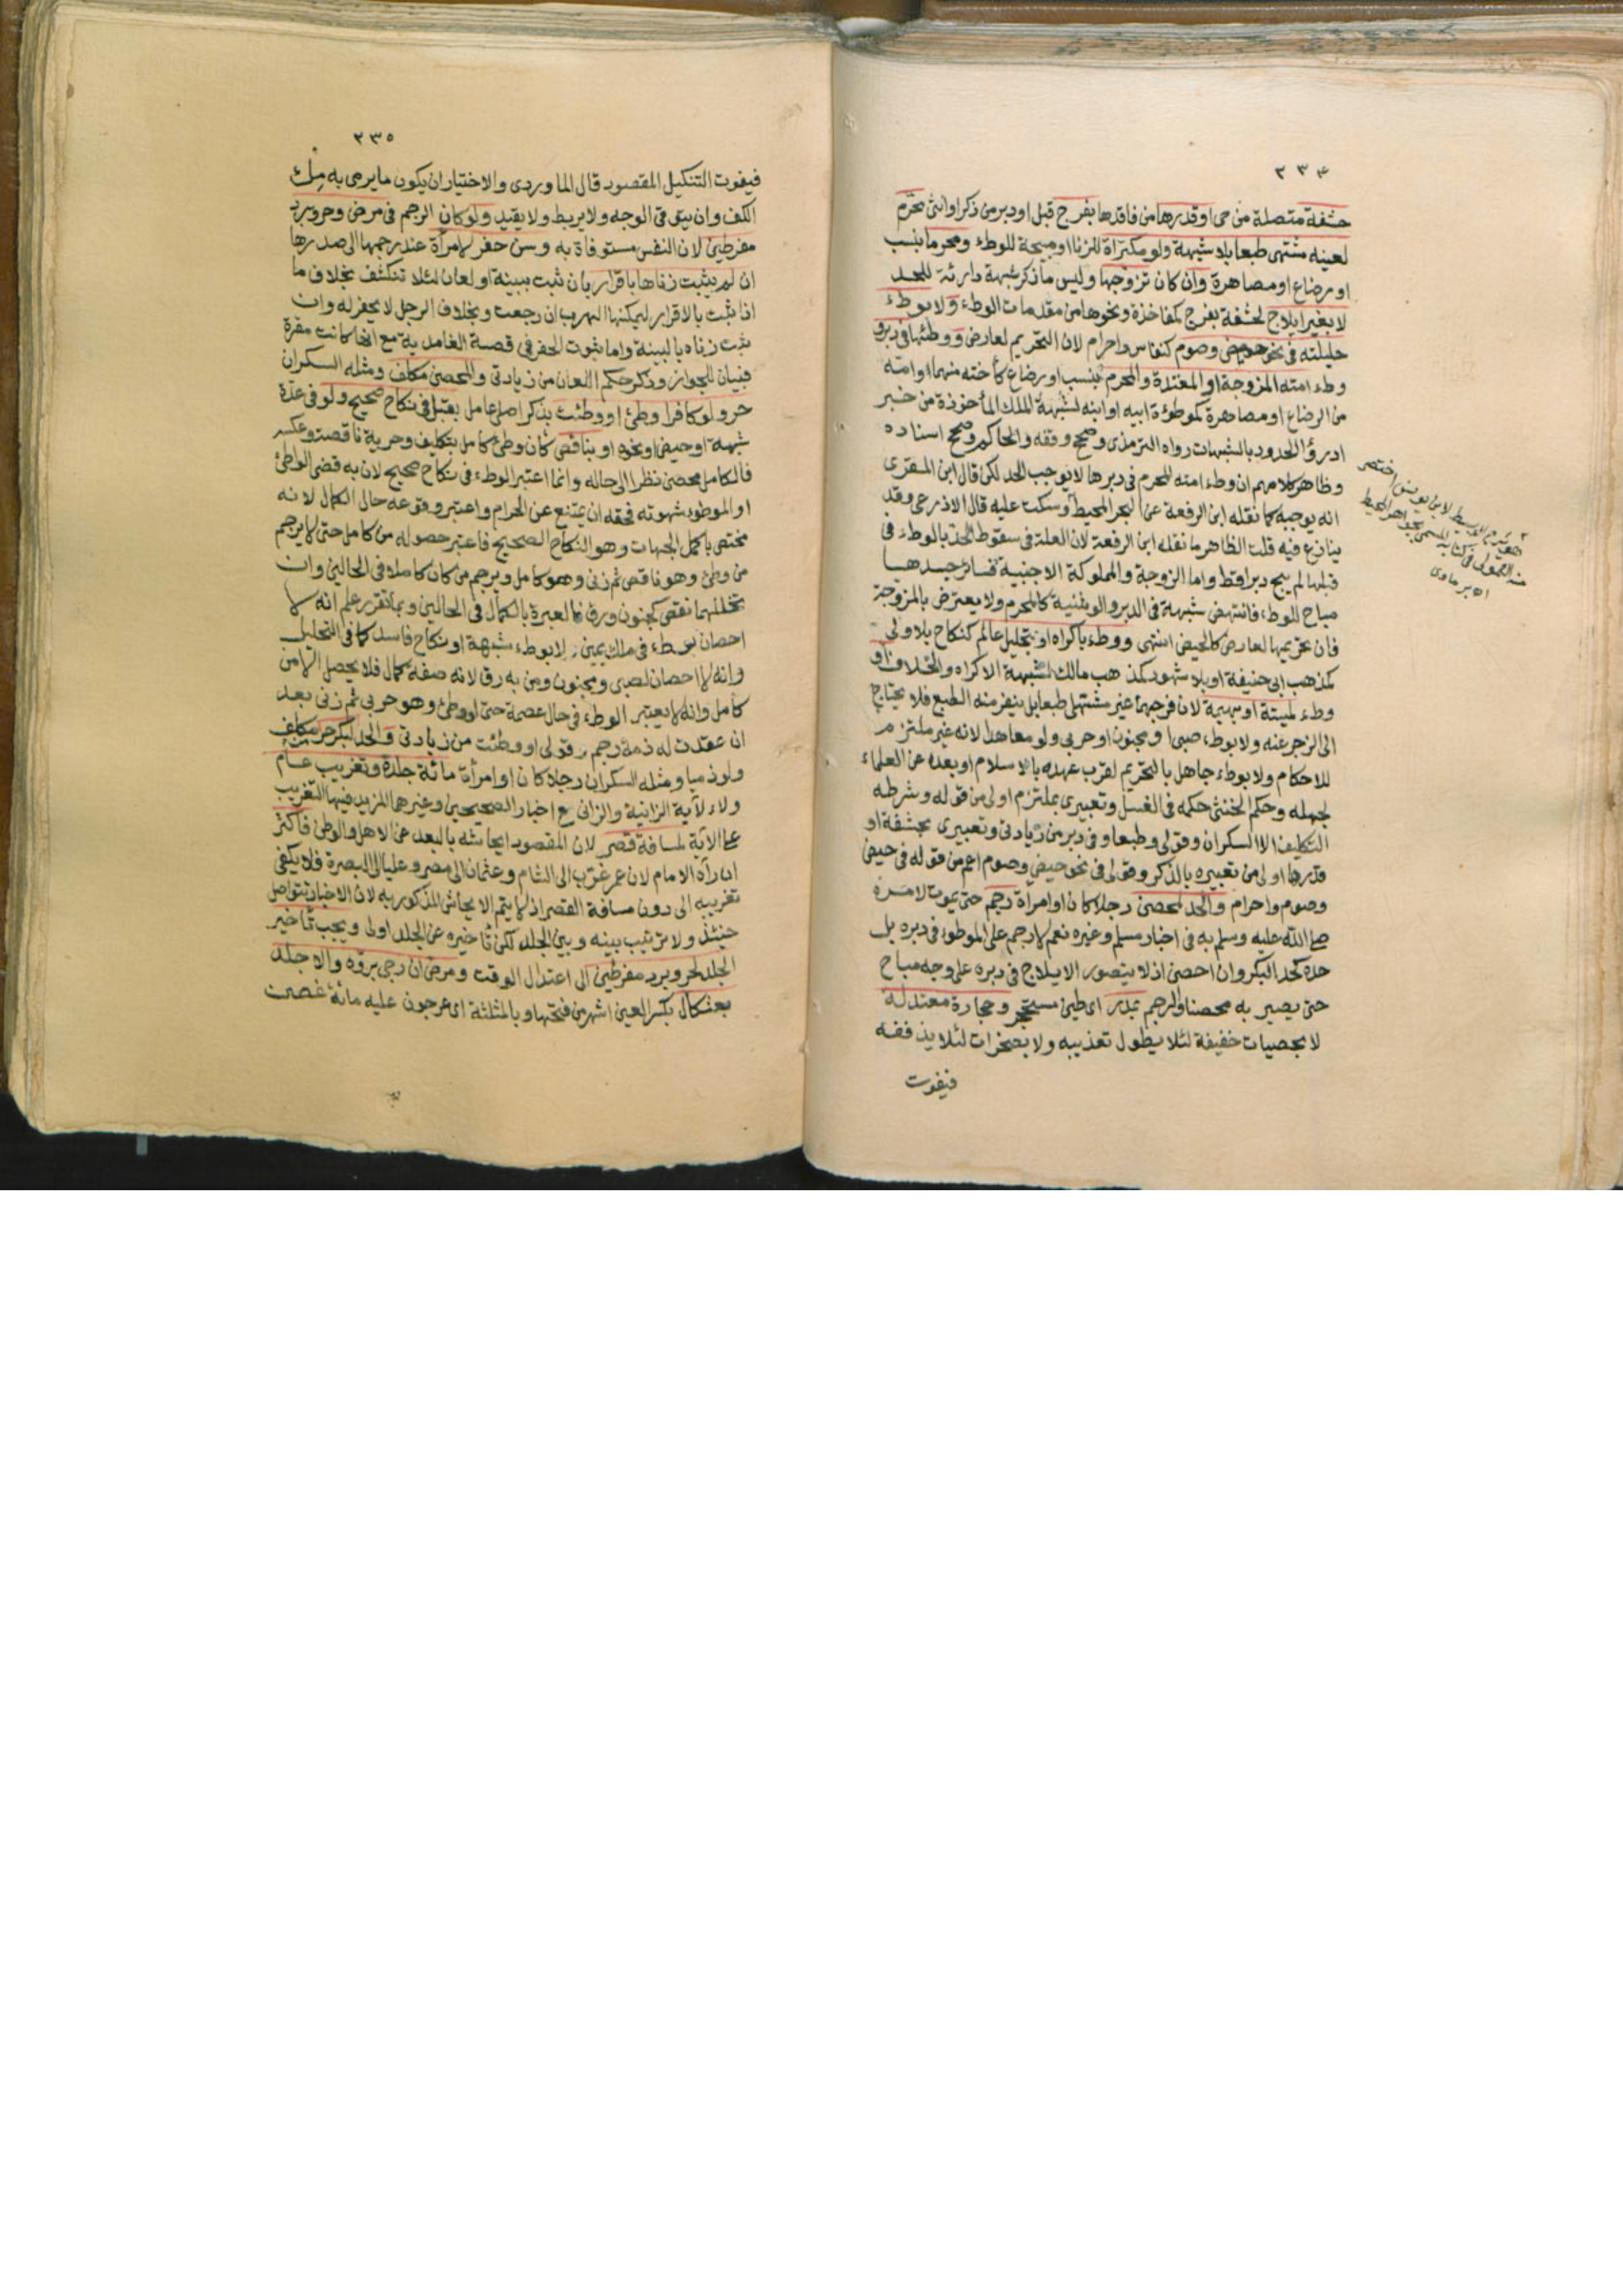 ٢٣٤
حشفة متصلة من حي او قدرها من فاقدها بفرج قبل او دبر من ذكر او انثى محرم
لعينه مشتهى طبعا بلا شبهة ولو مكتراة للزنا او مبيحة للوطء ومحرما بنسب
او رضاع او مصاهرة وان كان تزوجها وليس ما ذكر شبهة دارئة للحد
لا بغير ايلاج لحشفة بفرج كمفاخذة ونحوها من مقدمات الوطء ولا بوطء
حليلته في نحو حيض وصوم كنفاس واحرام لان التحريم لعارض ووطئها في دبر و
وطء امته المزوجة او المعتدة والمحرم بنسب او رضاع كأخته منهما او امته
من الرضاع او مصاهرة كموطوءة ابيه او ابنه لشبهة الملك المأخوذة من خبر
ادرؤا الحدود بالشبهات رواه الترمذي وصحح وقفه والحاكم وصحح اسناده
وظاهر كلامهم ان وطء امته المحرم في دبرها لا يوجب الحد لكن قال ابن المقرى
انه يوجبه كما نقله ابن الرفعة عن البحر المحيط وسكت عليه قال الاذرعي وقد
ينازع فيه قلت الظاهر ما نقله ابن الرفعة لان العلة في سقوط الحد بالوطء في
قبلها لم يبح دبرا قط واما الزوجة والمملوكة الاجنبية فسائر جسدها
مباح للوطء فانتهض شبهة في الدبر والوثنية كالمحرم ولا يعترض بالمزوجة
فان تحريمها لعارض كالحيض انتهى ووطء باكراه او بتحليل عالم كنكاح بلا ولي
كمذهب ابي حنيفة او بلا شهود كمذهب مالك لشبهة الاكراه والخلاف او
وطء لميتة او بهيمة لان فرجهما غير مشتهى طبعا بل ينفر منه الطبع فلا يحتاج
الى الزجر عنه ولا بوطء صبي او مجنون او حربي ولو معاهدا لانه غير ملتزم
للاحكام ولا بوطء جاهل بالتحريم لقرب عهده بالاسلام او بعده عن العلماء
لجهله وحكم الخنثى حكمه في الغسل وتعبيري بملتزم اولى من قوله وشرطه
التكليف الا السكران وقولي وطبعا وفي دبر من زيادتي وتعبيري بحشفة او
قدرها اولى من تعبيره بالذكر وقولي في نحو حيض وصوم اعم من قوله في حيض
وصوم واحرام والحد لمحصن رجلا كان او امرأة رجم حتى يموت لامره
صلى الله عليه وسلم به في اخبار مسلم وغيره نعم لا رجم على الموطوء في دبره بل
حده كحد البكر وان احصن اذ لا يتصور الايلاج في دبره على وجه مباح
حتى يصير به محصنا والرجم بمدر اي طين مستحجر وحجارة معتدلة
لا بحصيات خفيفة لئلا يطول تعذيبه ولا بصخرات لئلا يذففه
فيفوت
اه برماوى
٢٣٥
فيفوت التنكيل المقصود قال الماوردي والاختيار ان يكون ما يرمى به ملء
الكف وان يتوقى الوجه ولا يربط ولا يقيد ولو كان الرجم في مرض وحر وبرد
مفرطين لان النفس مستوفاة به وسن حفر لامرأة عند رجمها الى صدرها
ان لم يثبت زناها باقرار بان ثبت ببينة او لعان لئلا تنكشف بخلاف ما
اذا ثبت بالاقرار ليمكنها الهرب ان رجعت وبخلاف الرجل لا يحفر له وان
ثبت زناه بالبينة واما ثبوت الحفر في قصة الغامدية مع انها كانت مقرة
فبيان للجواز وذكر حكم اللعان من زيادتي والمحصن مكلف ومثله السكران
حر ولو كافرا وطئ او وطئت بذكر اصلي عامل بقبل في نكاح صحيح ولو في عدة
شبهة او حيض او نحوه او بناقص كأن وطئ كامل بتكليف وحرية ناقصة وعكسه
فالكامل محصن نظرا الى حاله وانما اعتبر الوطء في نكاح صحيح لان به قضى الواطئ
او الموطوء شهوته فحقه ان يمتنع عن الحرام واعتبر وقوعه حال الكمال لانه
مختص باكمل الجهات وهو النكاح الصحيح فاعتبر حصوله من كامل حتى لا يرجم
من وطئ وهو ناقص ثم زنى وهو كامل ويرجم من كان كاملا في الحالين وان
تخللهما نقص كجنون ورق فالعبرة بالكمال في الحالين وبما تقرر علم انه لا
احصان بوطء في ملك يمين ولا بوطء شبهة او نكاح فاسد كما في التحليل
وانه لا احصان لصبي ومجنون ومن به رق لانه صفة كمال فلا يحصل الا من
كامل وانه لا يعتبر الوطء في حال عصمة حتى لو وطئ وهو حربي ثم زنى بعد
ان عقدت له ذمة رجم وقولي او وطئت من زيادتي والحد لبكر حر مكلف
ولو ذميا ومثله السكران رجلا كان او امرأة مائة جلدة وتغريب عام
ولاء لآية الزانية والزاني مع اخبار الصحيحين وغيرهما المزيد فيها التغريب
على الآية لمسافة قصر لان المقصود ايحاشه بالبعد عن الاهل والوطن فاكثر
ان رآه الامام لان عمر غرب الى الشام وعثمان الى مصر وعليا الى البصرة فلا يكفي
تغريبه الى دون مسافة القصر اذ لا يتم الايحاش المذكور به لان الاخبار تتواصل
حينئذ ولا ترتيب بينه وبين الجلد لكن تأخيره عن الجلد اولى ويجب تأخير
الجلد لحر وبرد مفرطين الى اعتدال الوقت ومرض ان رجي برؤه والا جلد
بعثكال بكسر العين اشهر من فتحها وبالمثلثة اي عرجون عليه مائة غصن